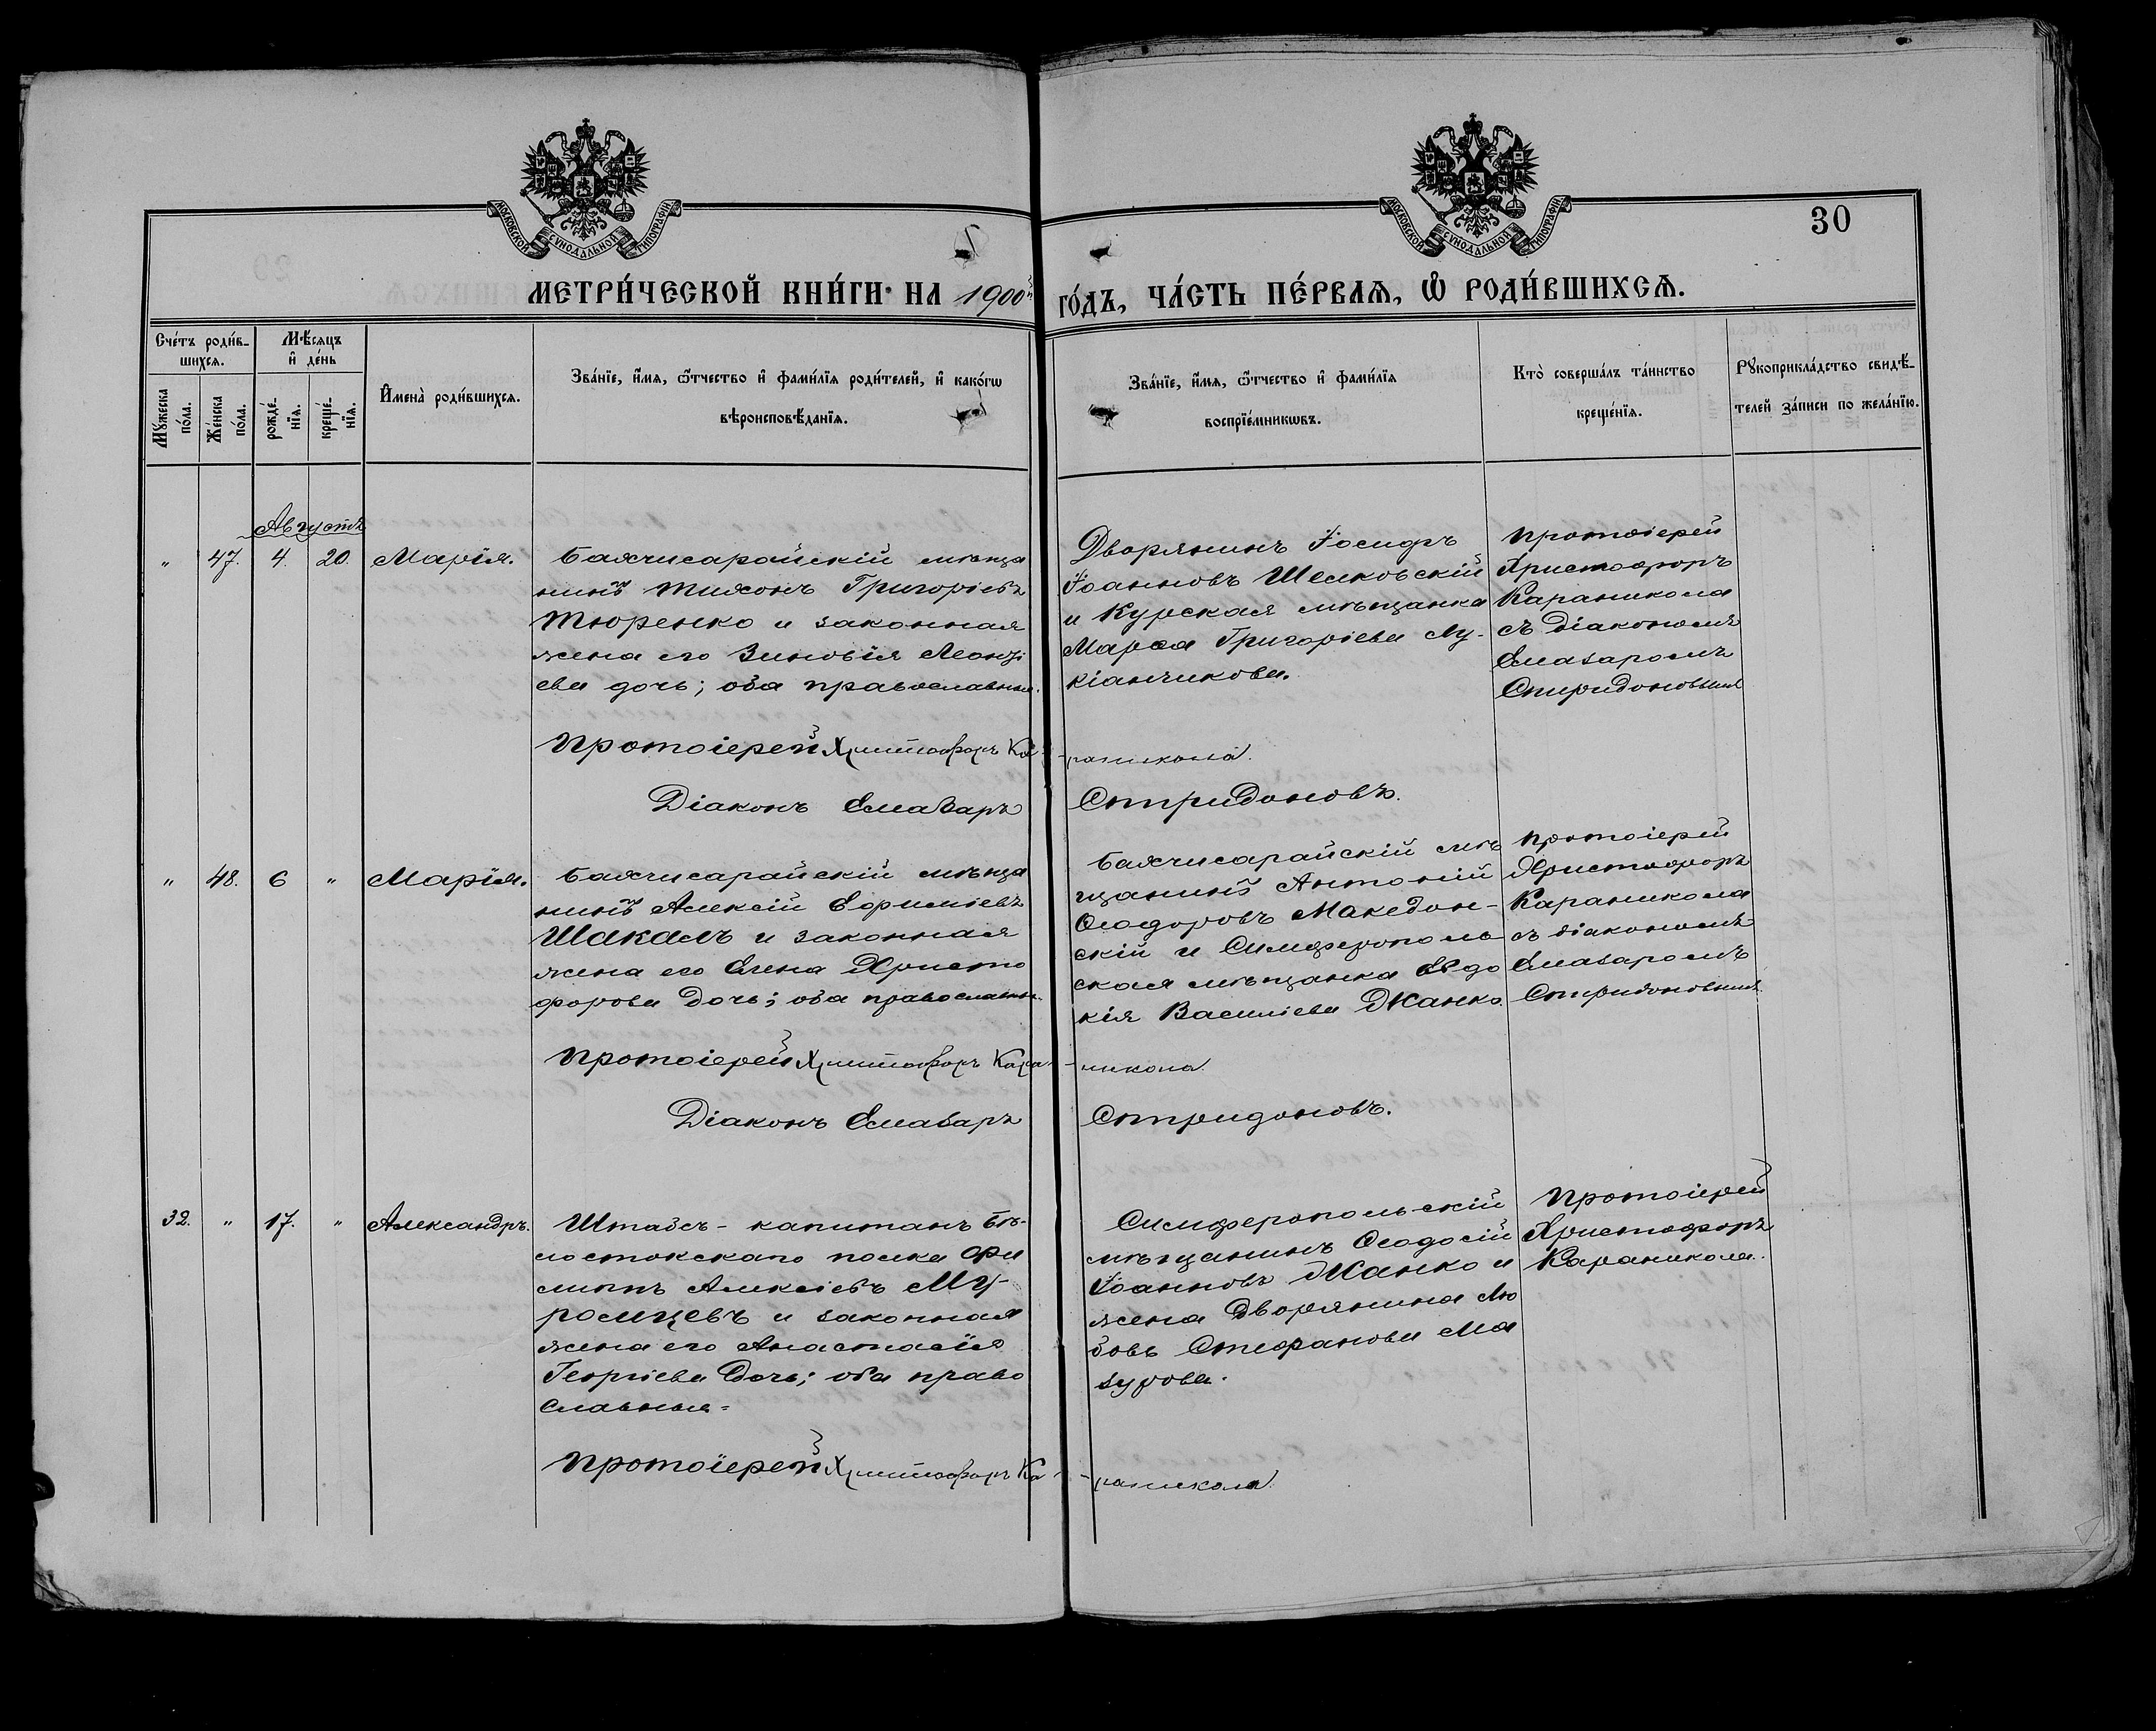 МОСКОВСКОЙ СУНОДАЛЬНОЙ ТИПОГРАФИИ
МОСКОВСКОЙ СУНОДАЛЬНОЙ ТИПОГРАФИИ
30
МЕТРИ́ЧЕСКОЙ КНИ́ГИ НА 1900й
ГО́ДЪ, ЧА́СТЬ ПЕ́РВАѦ, Ѡ РОДИ́ВШИХСѦ.
Сче́тъ роди́в-
шихсѧ.
Мꙋ́жеска
по́ла.
Же́нска
по́ла.
Мѣ́сѧцъ
и҆ де́нь
рожде́-
нїѧ.
креще́-
нїѧ.
И҆мена̀ роди́вшихсѧ.
Зва́нїе, и҆́мѧ, ѻ҆́тчество и҆ фами́лїѧ роди́телей, и҆ како́гѡ
вѣроисповѣ́данїѧ.
Зва́нїе, и҆́мѧ, ѻ҆́тчество и҆ фами́лїѧ
воспрїе́мникѡвъ.
Кто̀ соверша́лъ та́инство
креще́нїѧ.
Рꙋкоприкла́дство свидѣ́-
телей за́писи по жела́нїю.
Августъ
" 47. 4. 20. Марія.
Бахчисарайскій мѣща
нинъ Тихонъ Григоріевъ
Тюренко и законная
жена его Зиновія Леонті
ева дочь; оба православные.
Дворянинъ Іосифъ
Іоанновъ Шелковскій
и Курская мѣщанка
Марфа Григоріева Лу-
кіанчикова.
Протоіерей
Христофоръ
Караникола
съ діакономъ
Елазаромъ
Спиридоновымъ
Протоіерей Христофоръ Ка-
-раникола.
Діаконъ Елазаръ
Спиридоновъ.
" 48. 6 " Марія.
Бахчисарайскій мѣща
нинъ Алексій Ефиміевъ
Шакалъ и законная
жена его Елена Христо
форова дочь; оба православн.
Бахчисарайскій мѣ
щанинъ Антоній
Ѳеодоровъ Македон-
скій и Симферополь
ская мѣщанка Евдо
кія Василіева Джанко.
Протоіерей
Христофоръ
Караникола
съ діакономъ
Елазаромъ
Спиридоновымъ.
Протоіерей Христофоръ Кара-
-никола.
Діаконъ Елазаръ
Спиридоновъ.
32. " 17. " Александръ.
Штабсъ-капитанъ Бѣ-
лостокскаго полка Фи
липпъ Алексіевъ Му-
ромцевъ и законная
жена его Анастасія
Георгіева дочь; оба право
славные.
Симферопольскій
мѣщанинъ Ѳеодосій
Іоанновъ Джанко и
жена Дворянина Лю
бовь Стефанова Ма
зурова.
Протоіерей
Христофоръ
Караникола.
Протоіерей Христофоръ Ка-
-раникола.